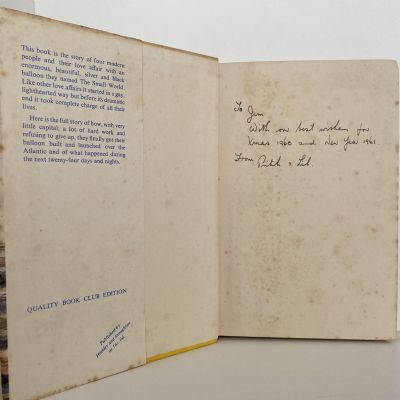 This book is the story of four modern
people and their love affair with an
enormous, beautiful, silver and black
balloon they named The Small World.
Like other love affairs it started in a gay,
lighthearted way but before its dramatic
end it took complete charge of all their
lives.
Here is the full story of how, with very
little capital, a lot of hard work and
refusing to give up, they finally got their
balloon built and launched over the
Atlantic and of what happened during
the next twenty-four days and nights.
QUALITY BOOK CLUB EDITION
Published by
Hodder and Stoughton
To Jim
With our best wishes for
Xmas 1960 and New Year 1961.
From